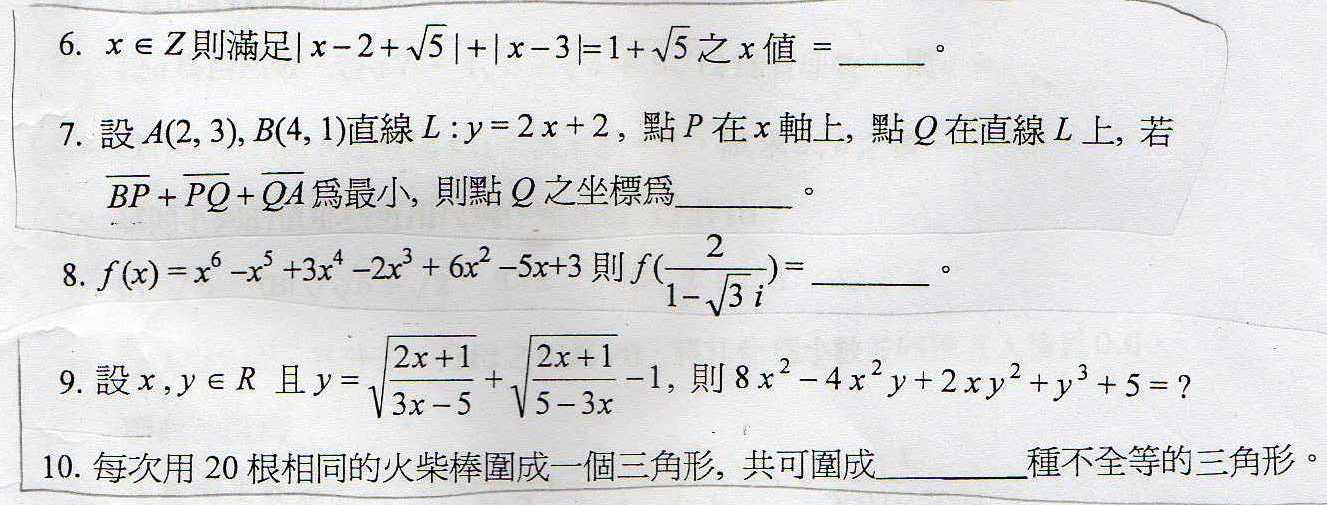 6. x ∈ Z 則滿足| x − 2 + √5 | + | x − 3 |= 1 + √5 之 x 值 = _____。
7. 設 A(2, 3), B(4, 1)直線 L : y = 2 x + 2 , 點 P 在 x 軸上, 點 Q 在直線 L 上, 若
B̅P̅ + P̅Q̅ + Q̅A̅ 爲最小, 則點 Q 之坐標爲_______。
8. f (x) = x⁶ –x⁵ +3x⁴ –2x³ + 6x² –5x+3 則 f (2/(1−√3 i)) = _______。
9. 設 x , y ∈ R 且 y = √((2x + 1)/(3x − 5)) + √((2x + 1)/(5 − 3x)) − 1, 則 8 x² − 4 x² y + 2 x y² + y³ + 5 = ?
10. 每次用 20 根相同的火柴棒圍成一個三角形, 共可圍成_________種不全等的三角形。